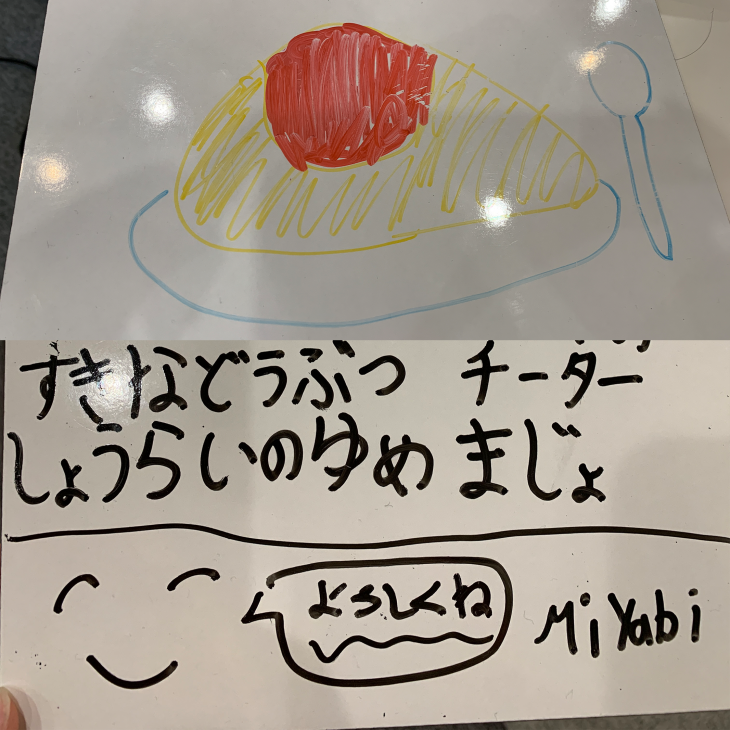 すきなどうぶつ チーター
しょうらいのゆめ まじょ
よろしくね
MiYabi